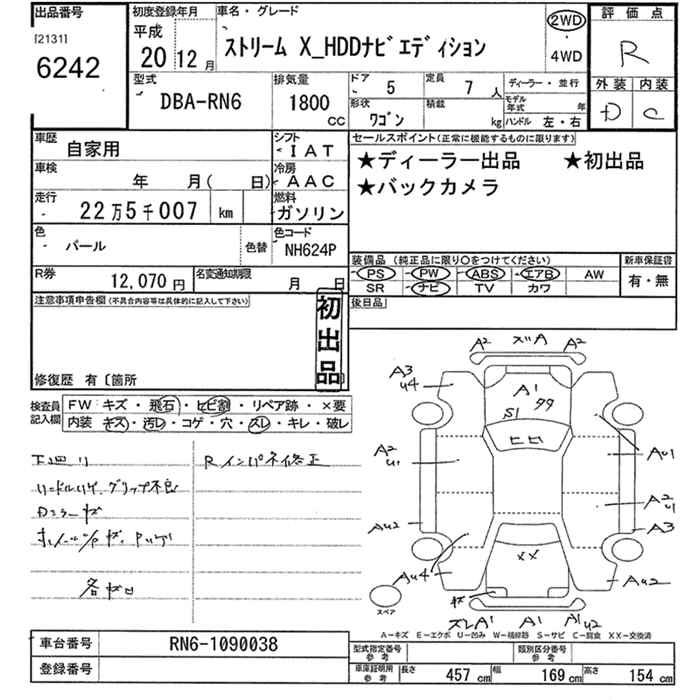 出品番号
[2131]
6242
初度登録年月
平成
20 12 月
車名・グレード
ストリーム X_HDDナビエディション
2WD
4WD
評価点
R
外装 内装
D C
型式
DBA-RN6
排気量
1800
CC
ドア 5
定員 7 人
ディーラー・並行
形状 ワゴン
積載 kg
モデル年式 年
ハンドル 左・右
車歴 自家用
シフト IAT
車検 年 月( 日)
冷房 AAC
走行 22万5千007 km
燃料 ガソリン
色 パール
色替
色コード NH624P
R券 12,070 円
名変通知期限 月 日
セールスポイント(正常に機能するものに限ります)
★ディーラー出品 ★初出品
★バックカメラ
装備品 (純正品に限り○をつけてください)
PS PW ABS エアB AW
SR ナビ TV カワ
新車保証書
有・無
後日品
注意事項申告欄(不具合内容等は具体的に記入して下さい)
初出品
修復歴 有〔箇所
検査員記入欄
FW キズ・飛石・ヒビ割・リペア跡・×要
内装 キズ・汚レ・コゲ・穴・スレ・キレ・破レ
下廻り
Rインパネ修正
グリップ不良
Dミラーキズ
各キロ
A2 ズレA A2
A3
U4
A1
S1 99
ヒビ
A2
U1
AU1
A2
U1
AU2
A3
XX
AU4
AU2
キズ
スペア
ズレA1 A1 A1 U2
A-キズ E-エクボ U-凹み W-補修跡 S-サビ C-腐食 XX-交換済
車台番号 RN6-1090038
登録番号
型式指定番号 参考
類別区分番号 参考
車庫証明用 参考
長さ 457 cm
幅 169 cm
高さ 154 cm